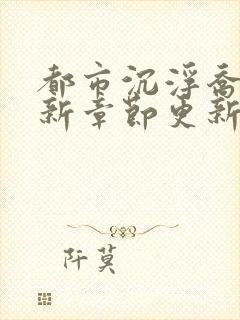 都市沉浮乔
新章节更新
阡莫